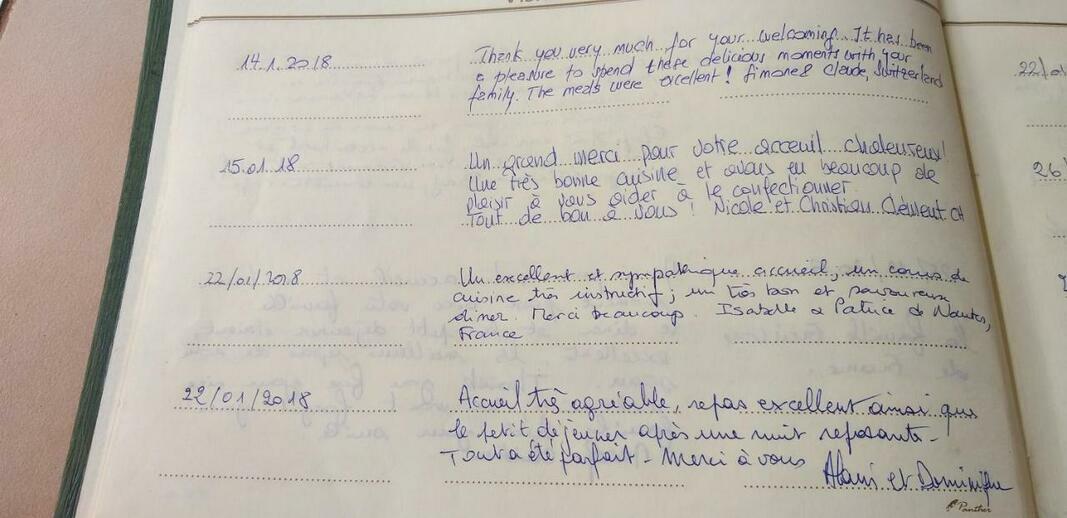 14.1.2018
Thank you very much for your welcoming. It has been
a pleasure to spend these delicious moments with your
family. The meals were excellent! Simone & Claude, Switzerland
15.01.18
Un grand merci pour votre acceuil chaleureux!
Une très bonne cuisine et avons eu beaucoup de
plaisir à vous aider à le confectionner.
Tout de bon à vous! Nicole et Christian Clément CH
22/01/2018
Un excellent et sympathique accueil, un cours de
cuisine très instructif, un très bon et savoureux
diner. Merci beaucoup. Isabelle & Patrice de Nantes,
France
22/01/2018
Accueil très agréable, repas excellent ainsi que
le petit déjeuner après une nuit reposante-
Tout a été parfait - Merci à vous Alain et Dominique
Panther
22/01
26